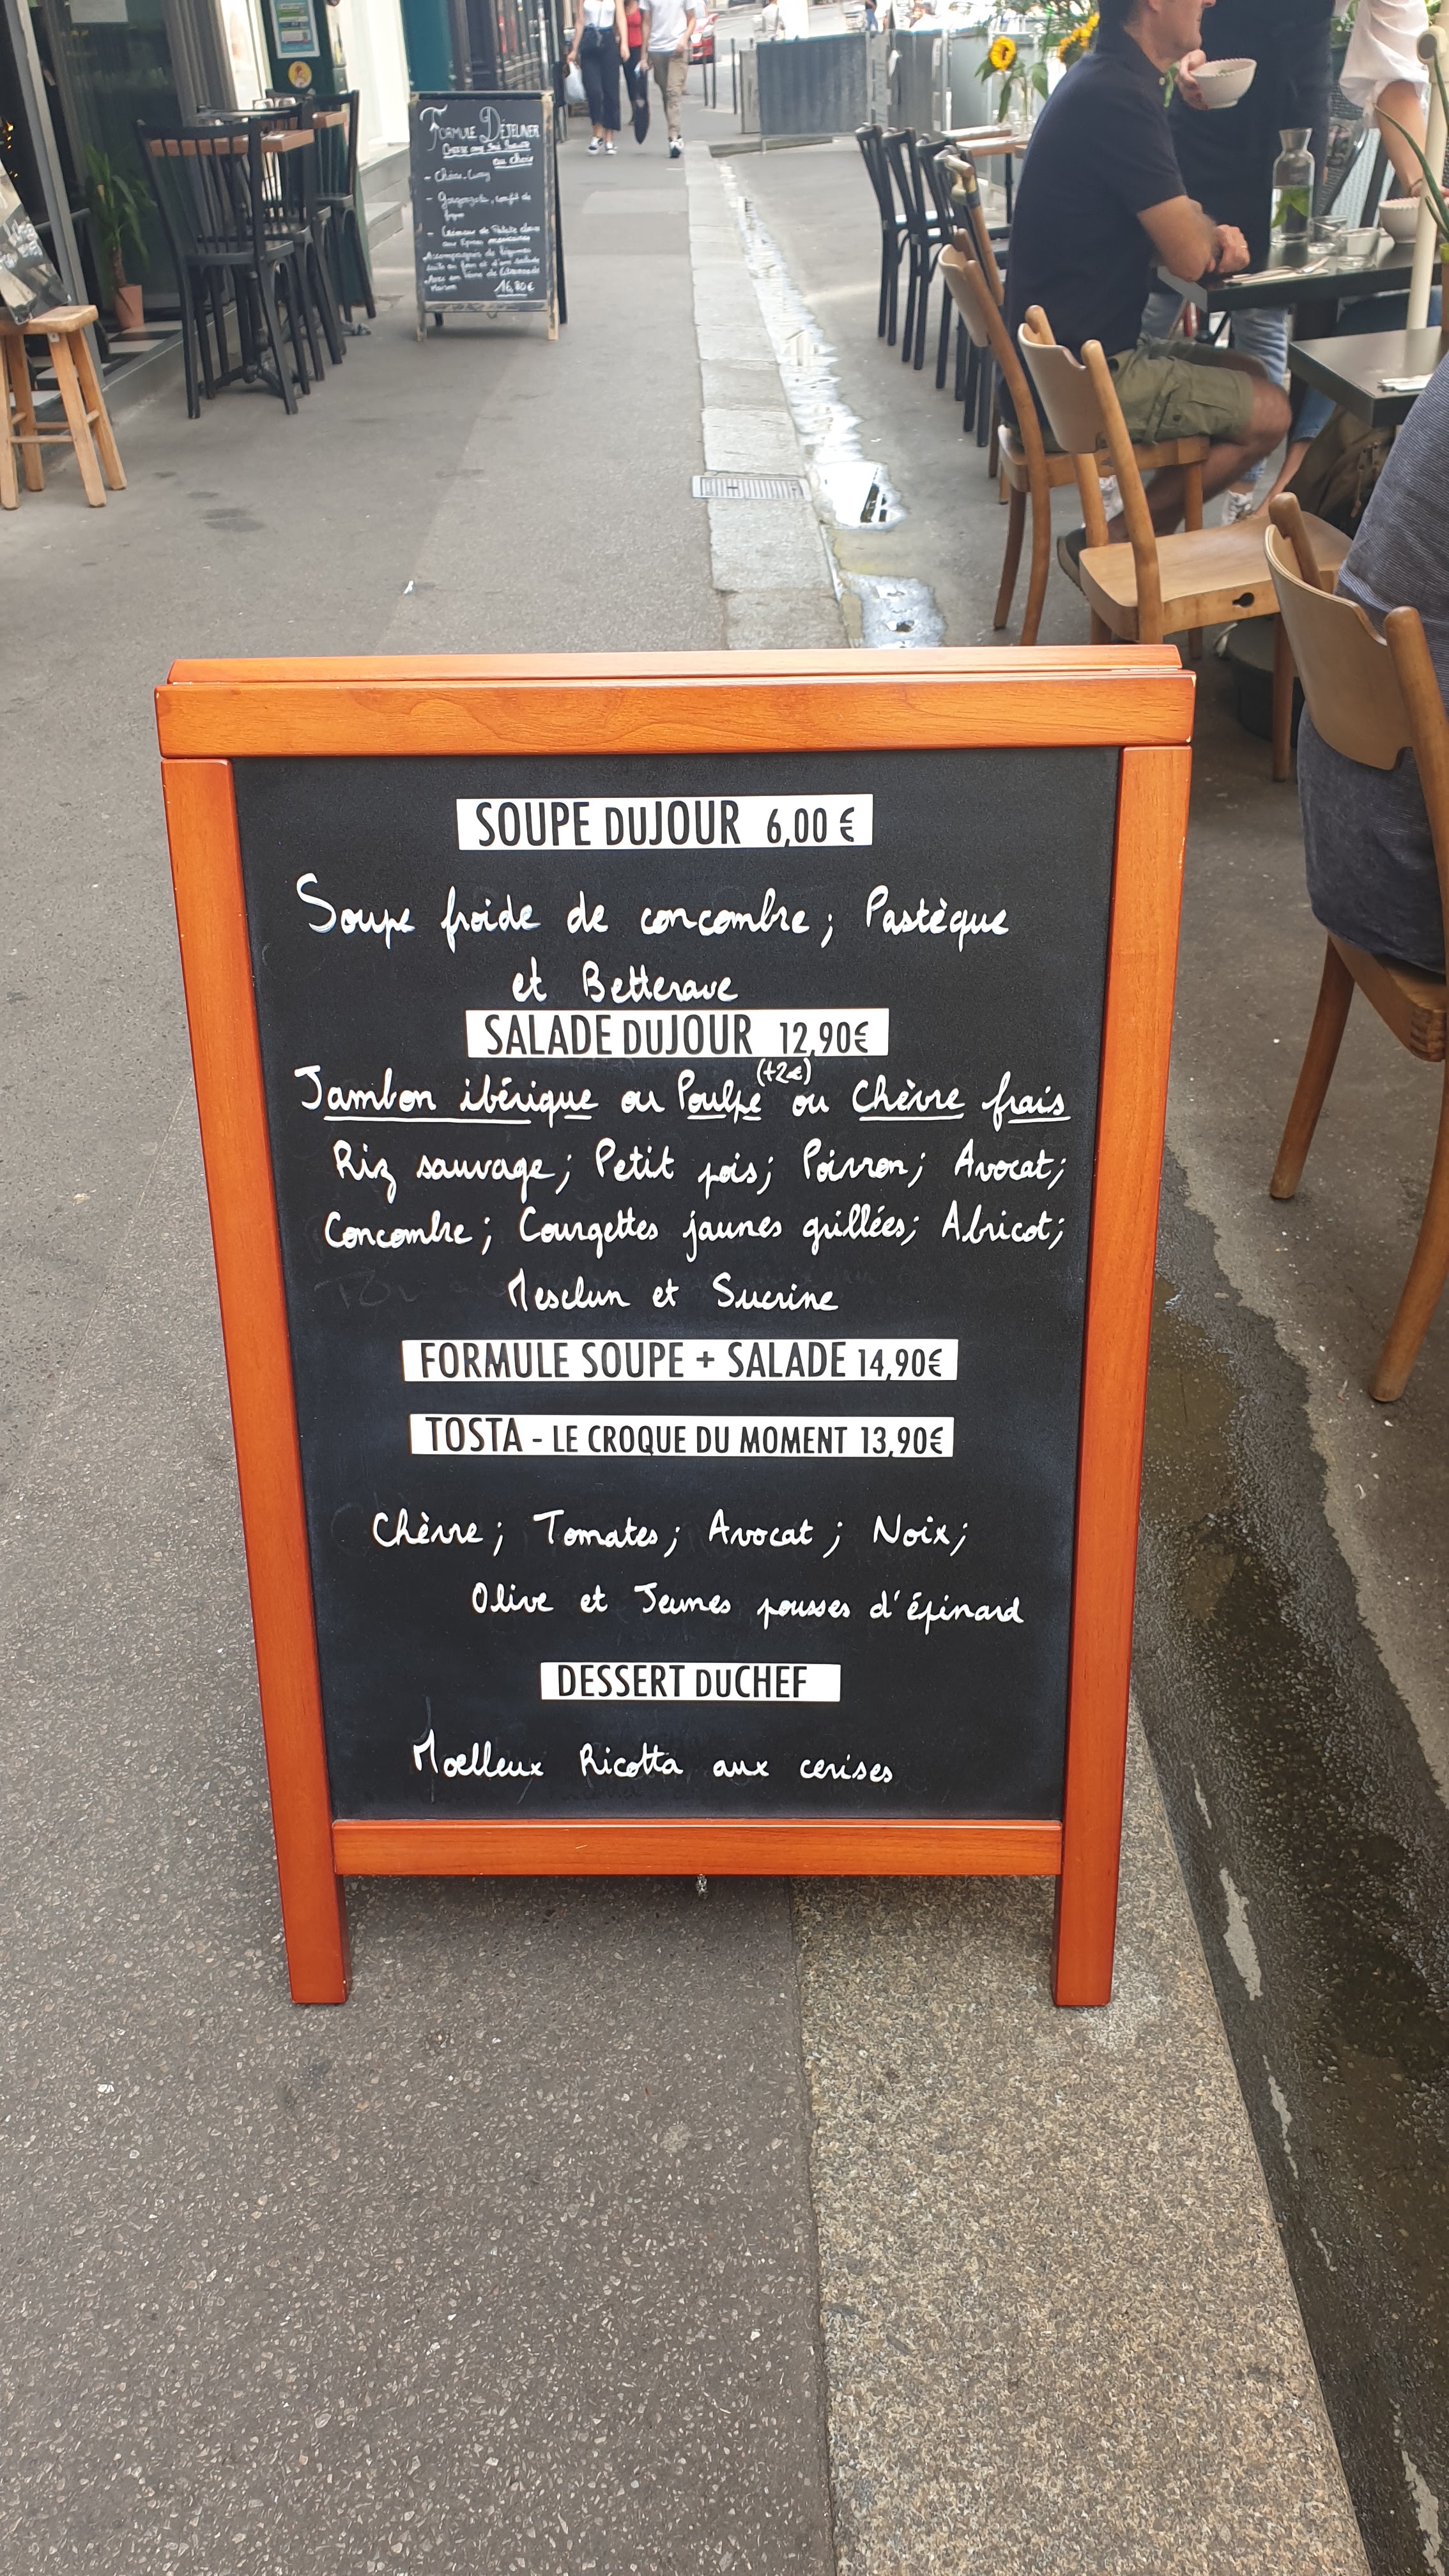 FORMULE DÉJEUNER
au choix
- Chèvre-Curry
- Gorgonzola, confit de
16,80€
SOUPE DUJOUR 6,00 €
Soupe froide de concombre ; Pastèque
et Betterave
SALADE DUJOUR 12,90€
(+2€)
Jambon ibérique ou Poulpe ou Chèvre frais
Riz sauvage ; Petit pois ; Poivron ; Avocat ;
Concombre ; Courgettes jaunes grillées ; Abricot ;
Mesclun et Sucrine
FORMULE SOUPE + SALADE 14,90€
TOSTA - LE CROQUE DU MOMENT 13,90€
Chèvre ; Tomates ; Avocat ; Noix ;
Olive et Jeunes pousses d'épinard
DESSERT DUCHEF
Moelleux Ricotta aux cerises